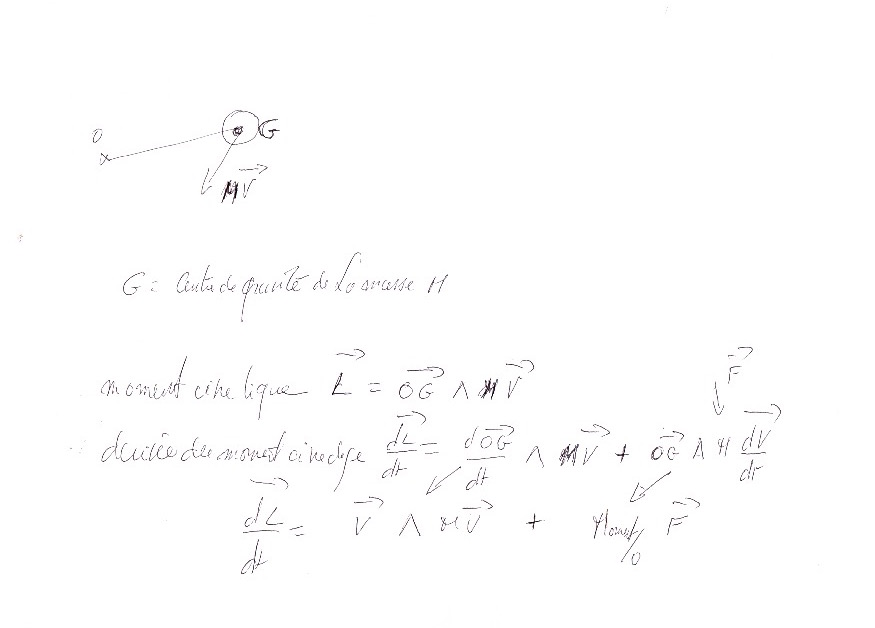 O
G
x
MV⃗
G = Centre de gravité de la masse M
F⃗
moment cinétique L⃗ = OG⃗ ∧ MV⃗
dérivée du moment cinétique dL⃗/dt = dOG⃗/dt ∧ MV⃗ + OG⃗ ∧ M dV⃗/dt
dL⃗/dt = V⃗ ∧ MV⃗ + Moment/O F⃗